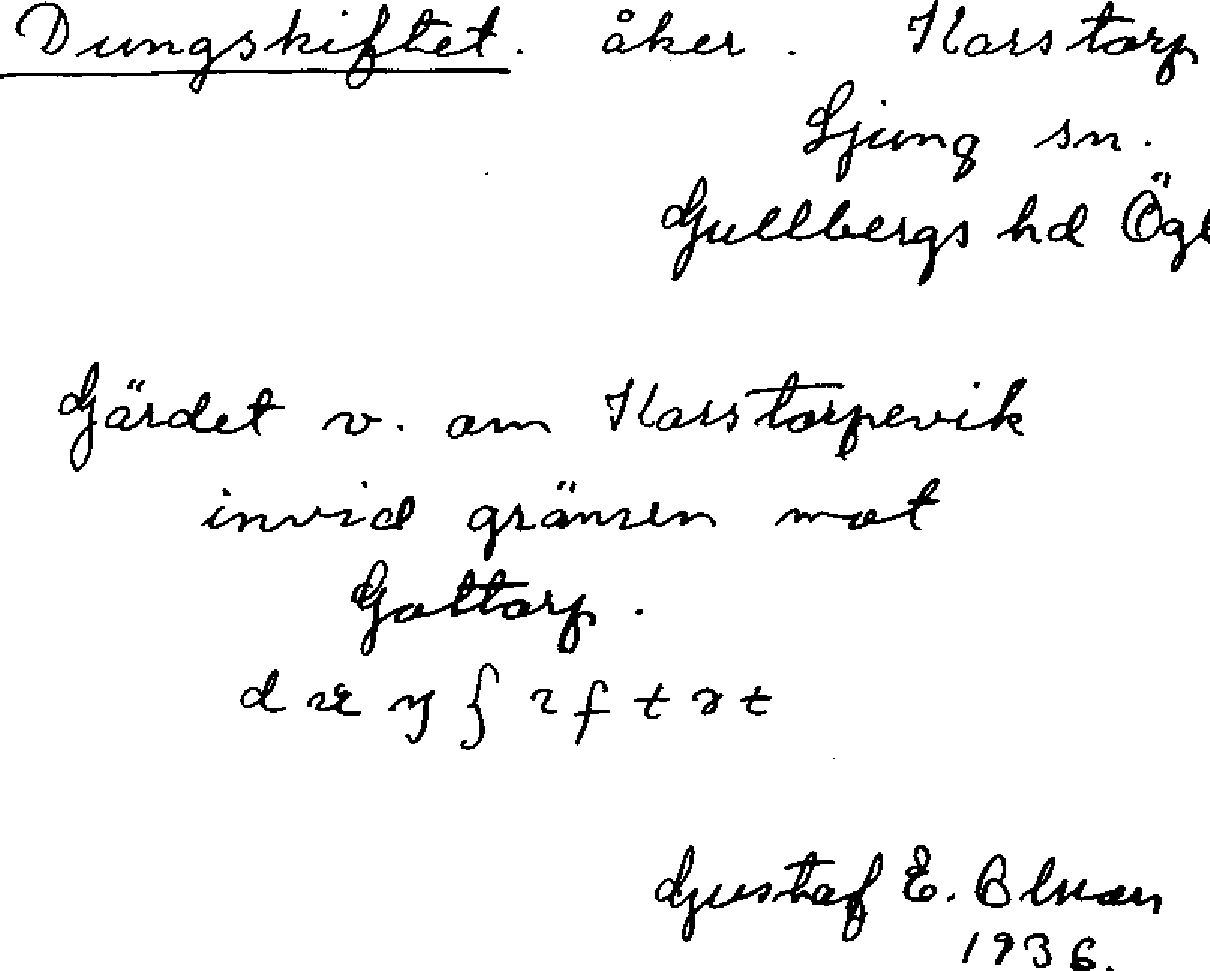 Dungskiftet. åker. Karstorp
Ljung sn.
Gullbergs hd Ögl
Gärdet v. om Karstorpevik
invid gränsen mot
Goltorp.
Gustaf E.
1936.